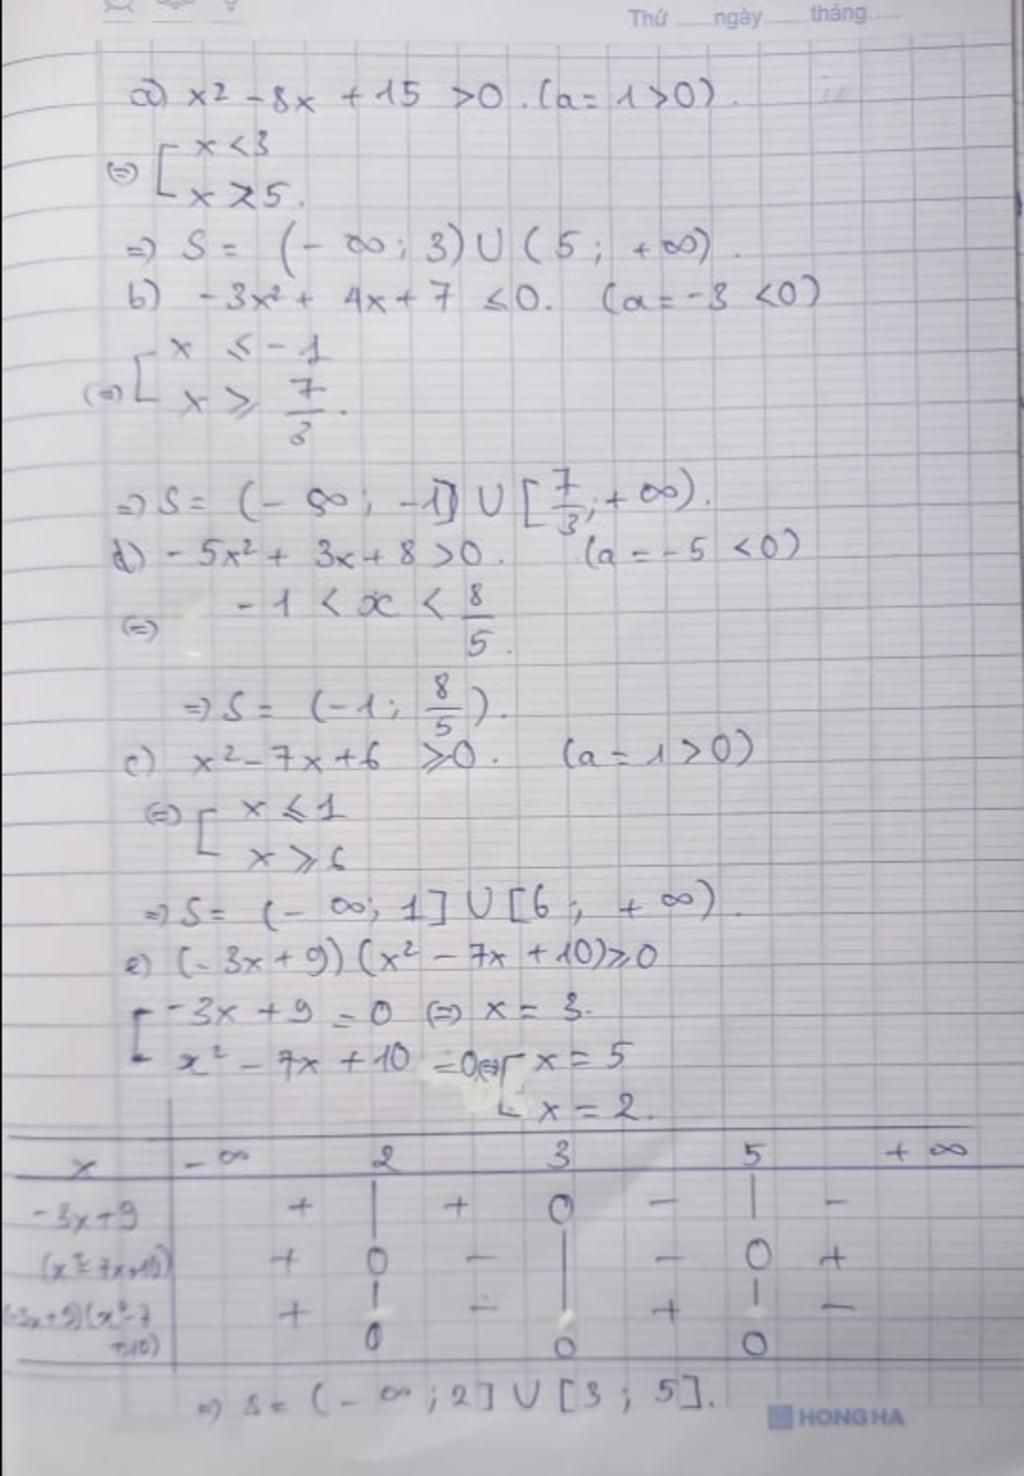 Thứ ngày tháng
a) x² - 8x + 15 > 0. (a = 1 > 0).
⇔ [ x < 3
x > 5.
⇒ S = (-∞; 3) ∪ (5; +∞).
b) -3x² + 4x + 7 ≤ 0. (a = -3 < 0)
⇔ [ x ≤ -1
x ≥ 7/3.
⇒ S = (-∞; -1] ∪ [7/3; +∞).
d) -5x² + 3x + 8 > 0. (a = -5 < 0)
⇔ -1 < x < 8/5.
⇒ S = (-1; 8/5).
c) x² - 7x + 6 ≥ 0. (a = 1 > 0)
⇔ [ x ≤ 1
x ≥ 6
⇒ S = (-∞; 1] ∪ [6; +∞).
e) (-3x + 9)(x² - 7x + 10) ≥ 0
[ -3x + 9 = 0 ⇔ x = 3.
x² - 7x + 10 = 0 ⇔ [ x = 5
x = 2.
x -∞ 2 3 5 +∞
-3x+9 + | + 0 - | -
(x²-7x+10) + 0 - | - 0 +
(-3x+9)(x²-7 + | - | + | -
+10) 0 0 0
⇒ S = (-∞; 2] ∪ [3; 5].
HONG HA